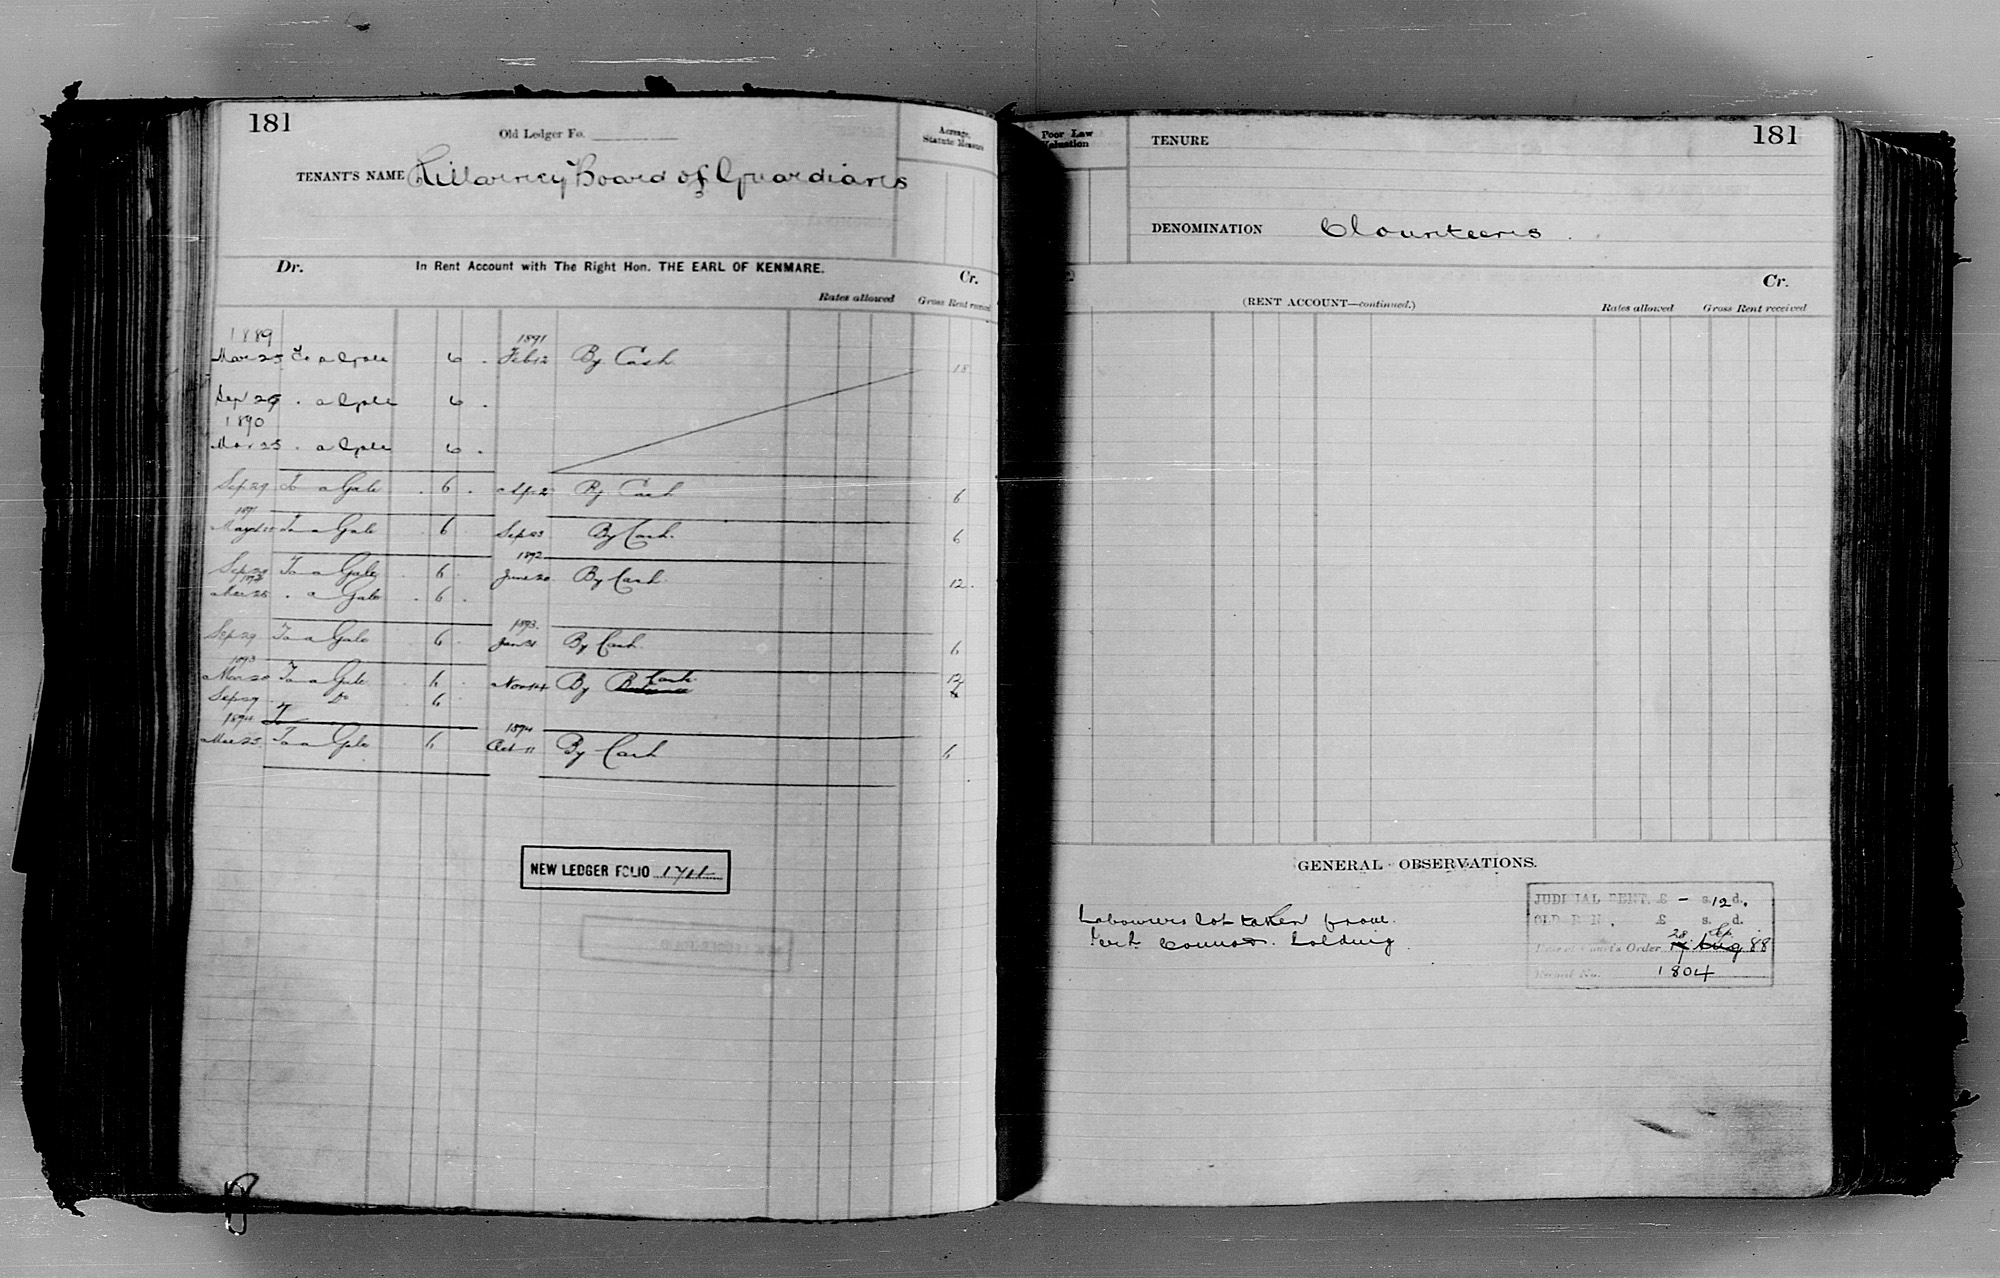 181
Old Ledger Fo.
Acreage, Statute Measure
TENANT'S NAME Killarney Board of Guardians
Dr. In Rent Account with The Right Hon. THE EARL OF KENMARE. Cr.
Rates allowed Gross Rent received
1889 1891
Mar 25 To a Gale 6 . Feb 12 By Cash 18
Sep 29 . a Gale 6 .
1890
Mar 25 . a Gale 6 .
Sep 29 To a Gale . 6 . By Cash 6
1891
To a Gale . 6 . Sep 23 By Cash 6
1892
Sep 29 To a Gale . 6 . June 20 By Cash 12
Mar 25 . a Gale . 6 .
1893
Sep 29 To a Gale . 6 . Jan 21 By Cash 6
1893
To a Gale 6 . Nov 14 By Cash 12
Sep 29 Do . 6
1894 To 1894
Mar 25 To a Gale 6 Oct 11 By Cash 6
NEW LEDGER FOLIO
Poor Law Valuation
TENURE
181
DENOMINATION Clounteens .
Cr.
(RENT ACCOUNT—continued.)
Rates allowed Gross Rent received
GENERAL OBSERVATIONS.
Labourers lot taken from
Connor holding
JUDICIAL RENT. £ - s. 12 d.
OLD RENT, £ s. d.
28 Sep
Date of Court's Order Aug 88
Record No. 1804